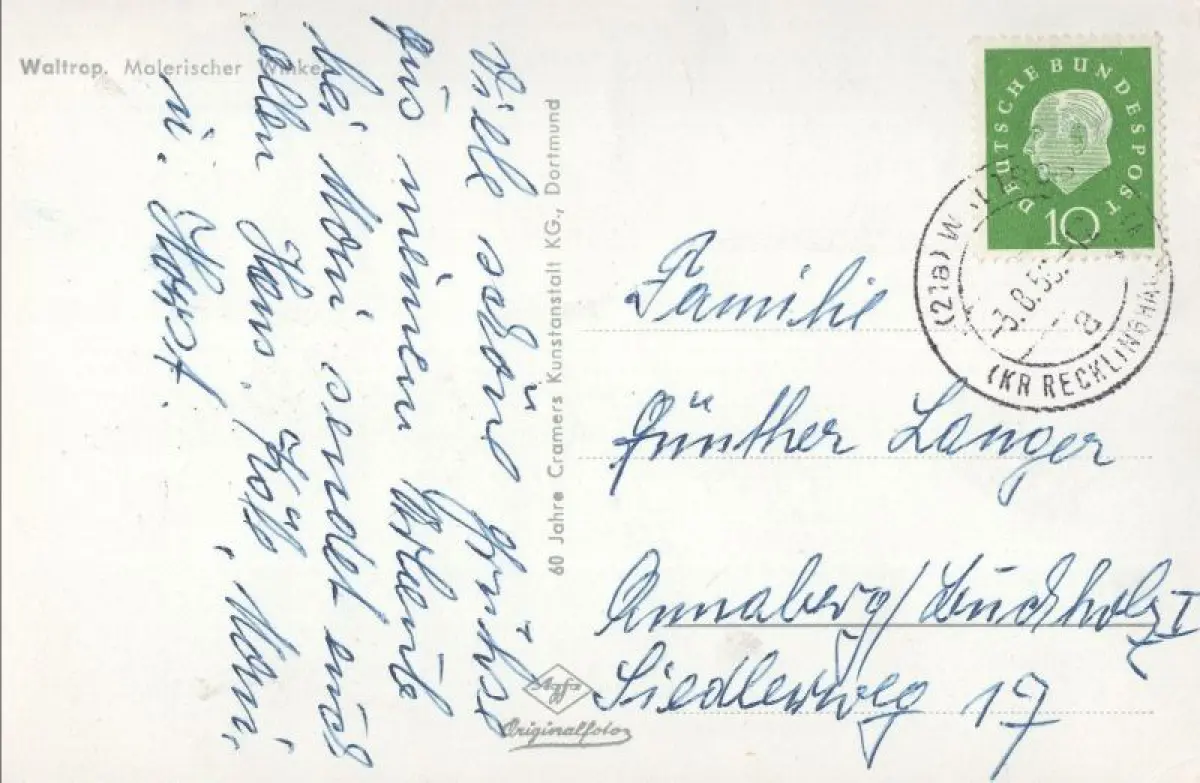 Waltrop. Malerischer Winkel
Viele schöne Grüße
aus meinem Urlaub
bei Moni sendet euch
allen Hans, Käte, Moni,
u. Horst.
60 Jahre Cramers Kunstanstalt KG., Dortmund
Agfa
Originalfoto
DEUTSCHE BUNDESPOST
10
(21a) W
-3.8.59.
a
(KR RECKLINGHAU
Familie
Günther Langer
Annaberg/Buchholz I
Siedlerweg 17